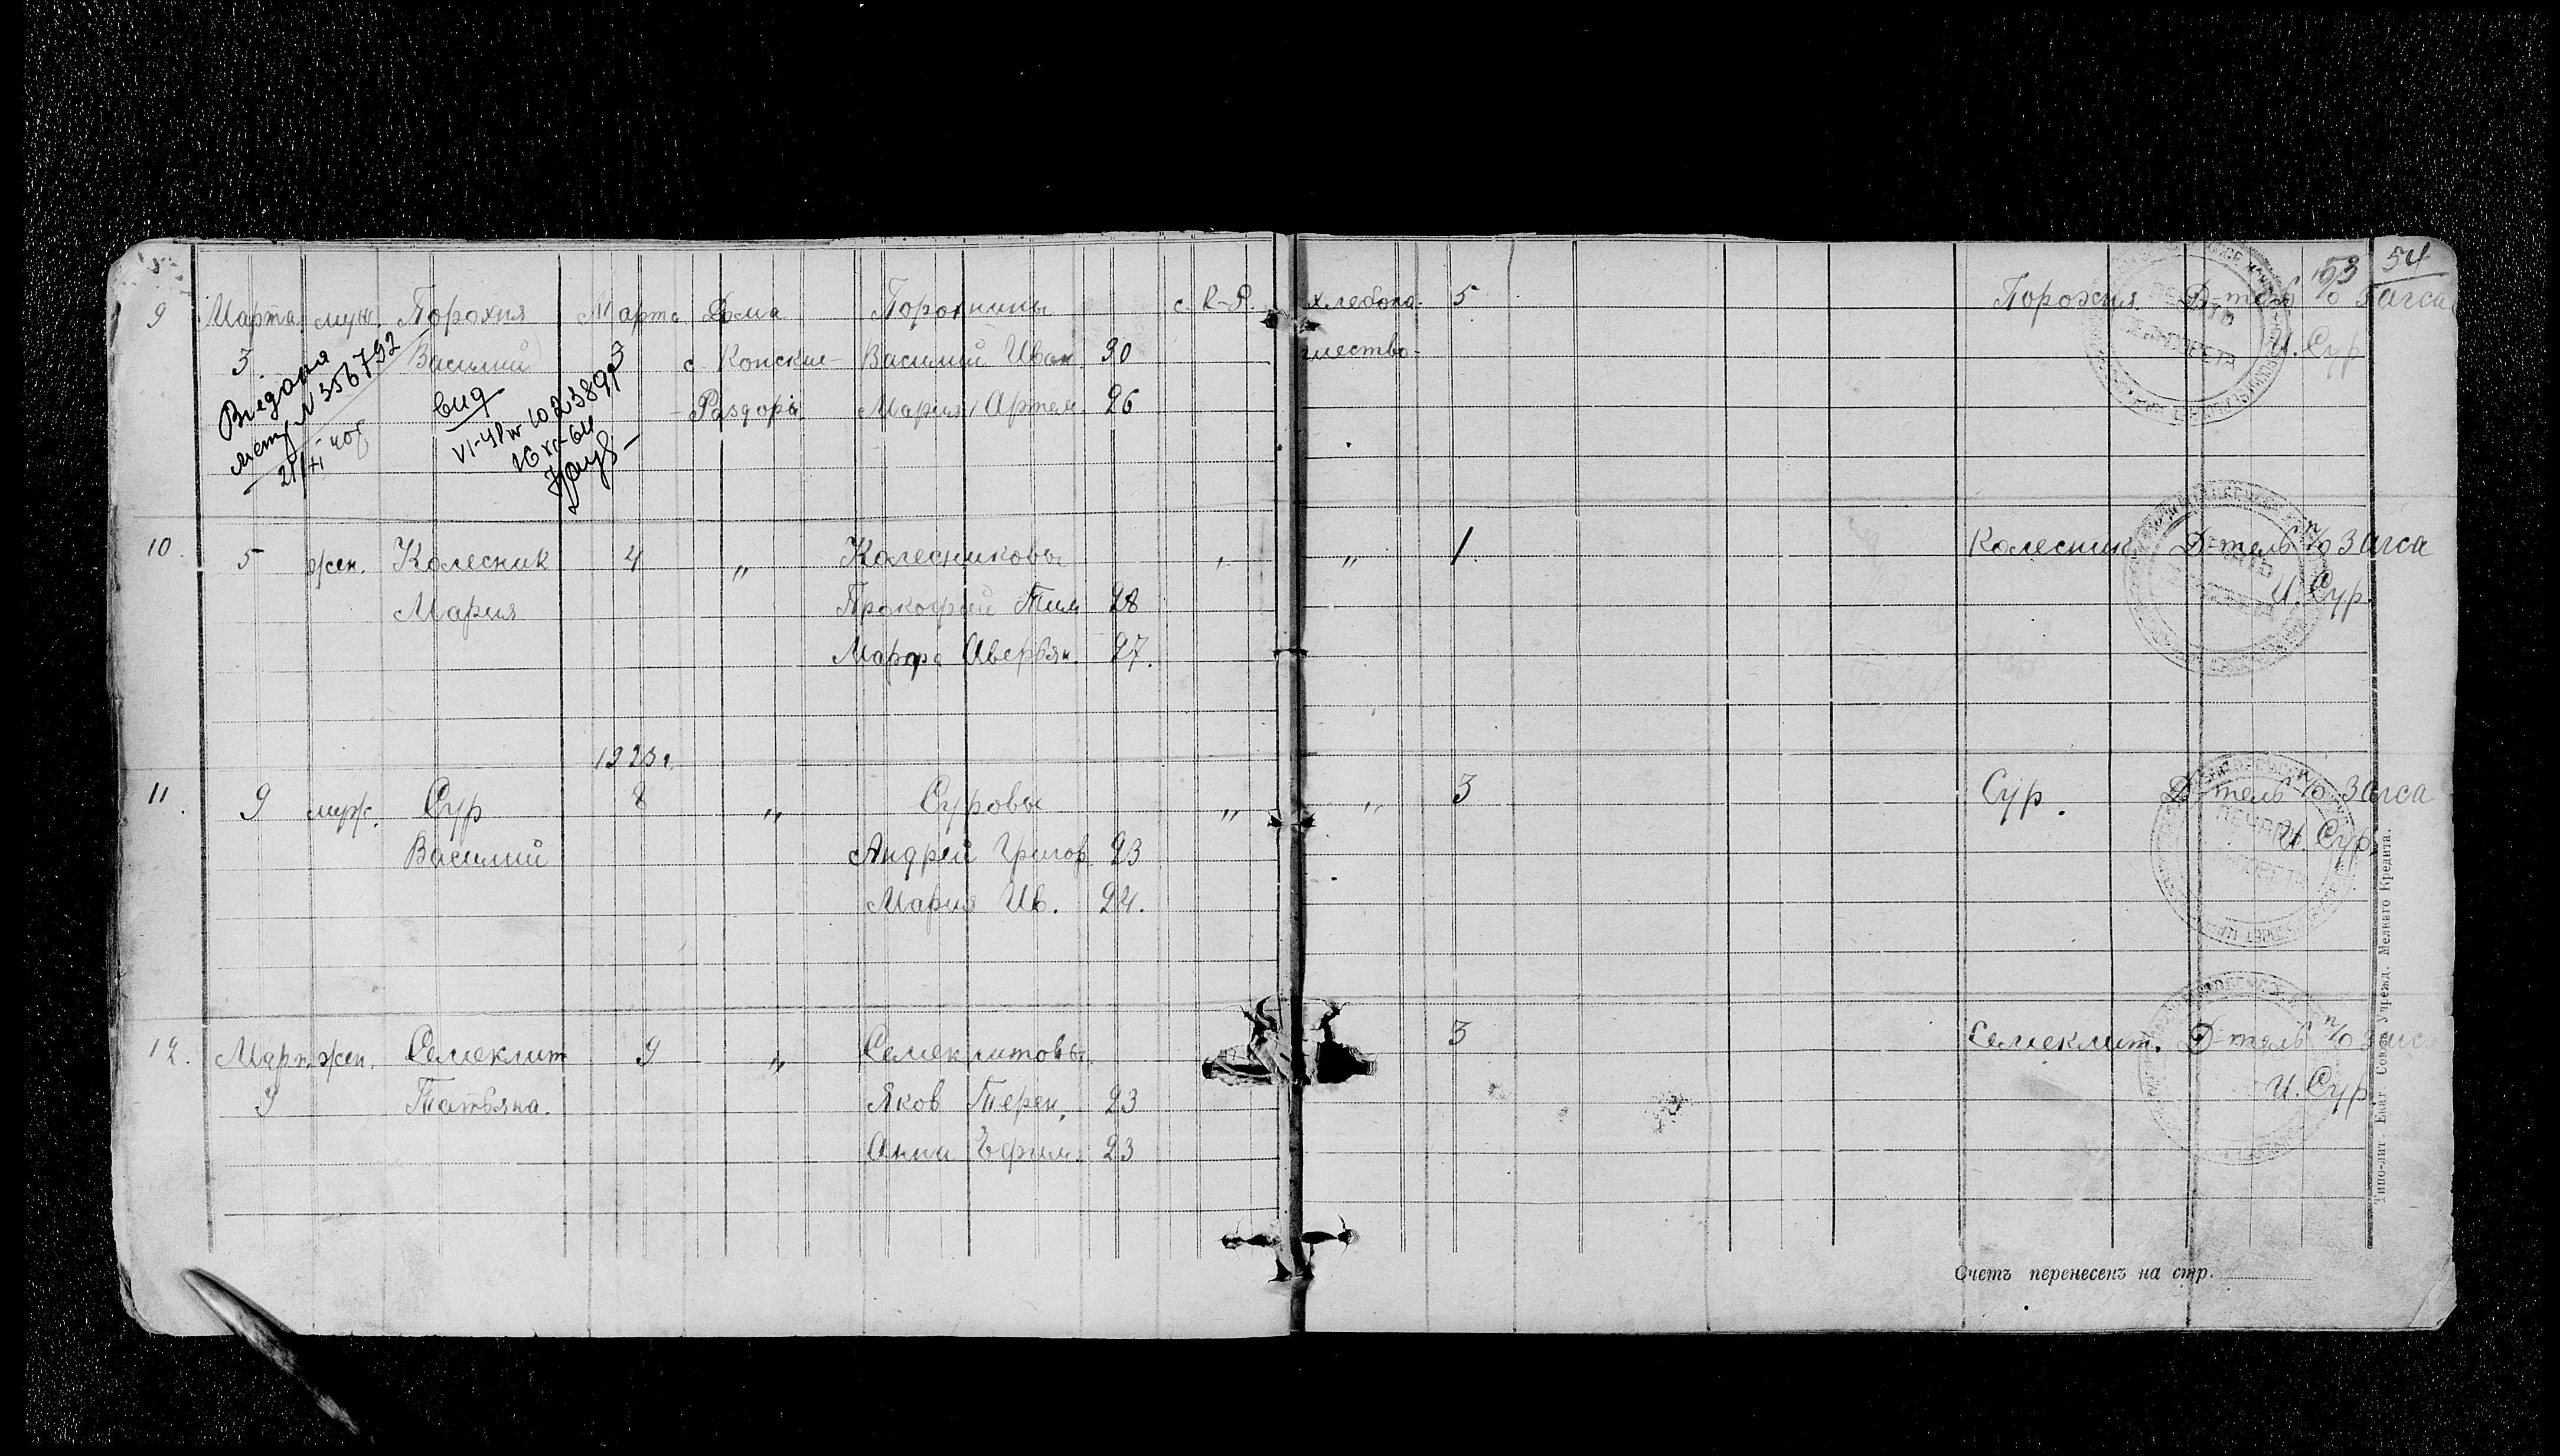 53 54
9 Марта муж. Порохня Марта Дома Порохнины с. К-Р. хлебопа- 5 Порохня. Д-тель п/о Загса
3 Василий 3 с. Конские- Василий Иван. 30 шество- И. Сур
-Раздоры Мария Артем. 26
Видана
метр N 356792
21/XI 40г
вид
VI-
16 XI-64
10. 5 жен. Колесник 4 „ Колесниковы „ „ 1. Колесник Д-тель п/о Загса
Мария Прокофий Тим 28 И. Сур.
Марфа Аверьян. 27.
1923 г.
11. 9 муж. Сур 8 „ Суровы „ „ 3 Сур. Д-тель п/о Загса
Василий Андрей Григор. 23 И. Сур.
Мария Ив. 24.
12. Март. жен. Семеклит 9 „ Семеклитовы. 3 Семеклит. Д-тель п/о Загса
9 Татьяна. Яков Терен. 23 И. Сур
Анна Ефим. 23
Счетъ перенесенъ на стр.
Типо-лит. Екат. Союза Учрежд. Мелкаго Кредита.